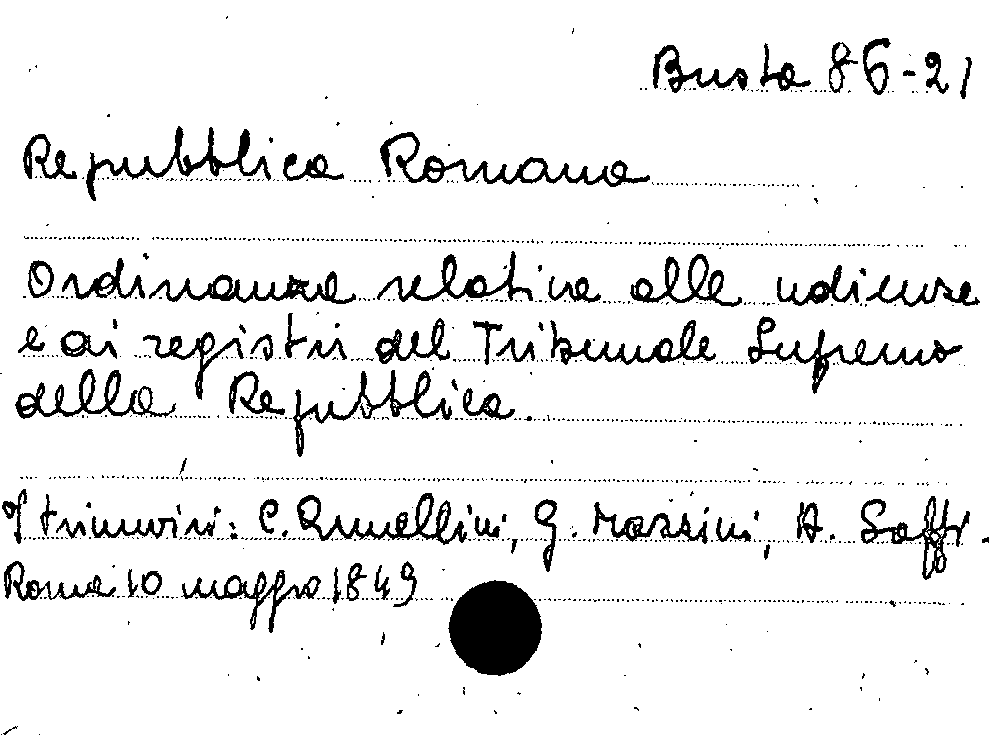 Busta 86-21
Repubblica Romana
Ordinanza relativa alle udienze
e ai registri del Tribunale Supremo
della Repubblica.
I triumviri: C. Armellini, G. Mazzini, A. Saffi.
Roma 10 maggio 1849